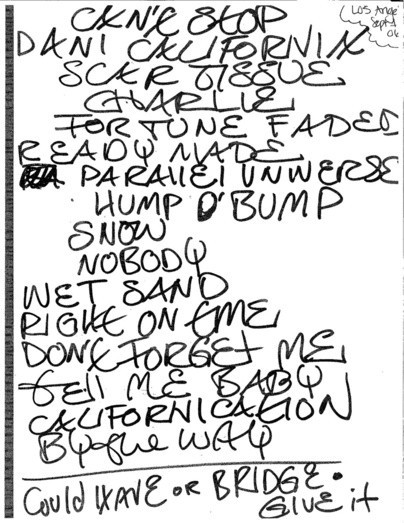 LOS Ange
Sept 1
06
CAN'T STOP
DANI CALIFORNIA
SCAR TISSUE
CHARLIE
FORTUNE FADED
READY MADE
PARALLEl UNIVERSE
HUMP D' BUMP
SNOW
NOBODY
WET SAND
RIGHT ON TIME
DON'T FORGET ME
tell ME BABY
CALIFORNICATION
By the WAY
Could HAVE OR BRIDGE.
GIVE it